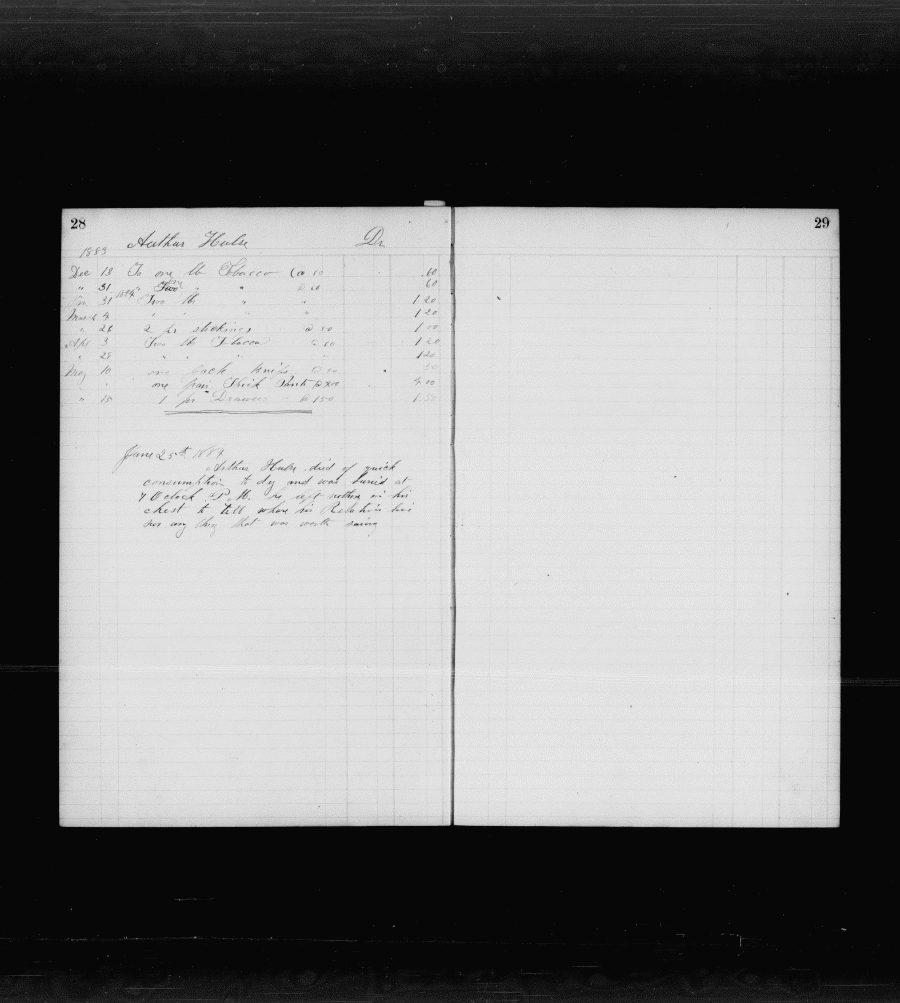 28
29
Arthur Hulse Dr
1883
Dec 13 To one lb Tobacco @ 60 .60
" 31 Two one " " @ 60 60
31 1884 Two lb " " 1 20
March 4 " " " 1 20
" 26 2 pr stockings @ 50 1 00
Apr 3 Two lb Tobacco @ 60 1 20
" 25 " " " 1 20
May 10 one Jack knife @ 50 50
" one pair Thick Pants @ 4.00
" 15 1 pr Drawers @ 150 1.50
June 25th 1884
Arthur Hulse died of quick
consumption to dy and was buried at
7 O clock P. M. he left nothen in his
chest to tell whare his Relation live
nor any thing that was worth saving